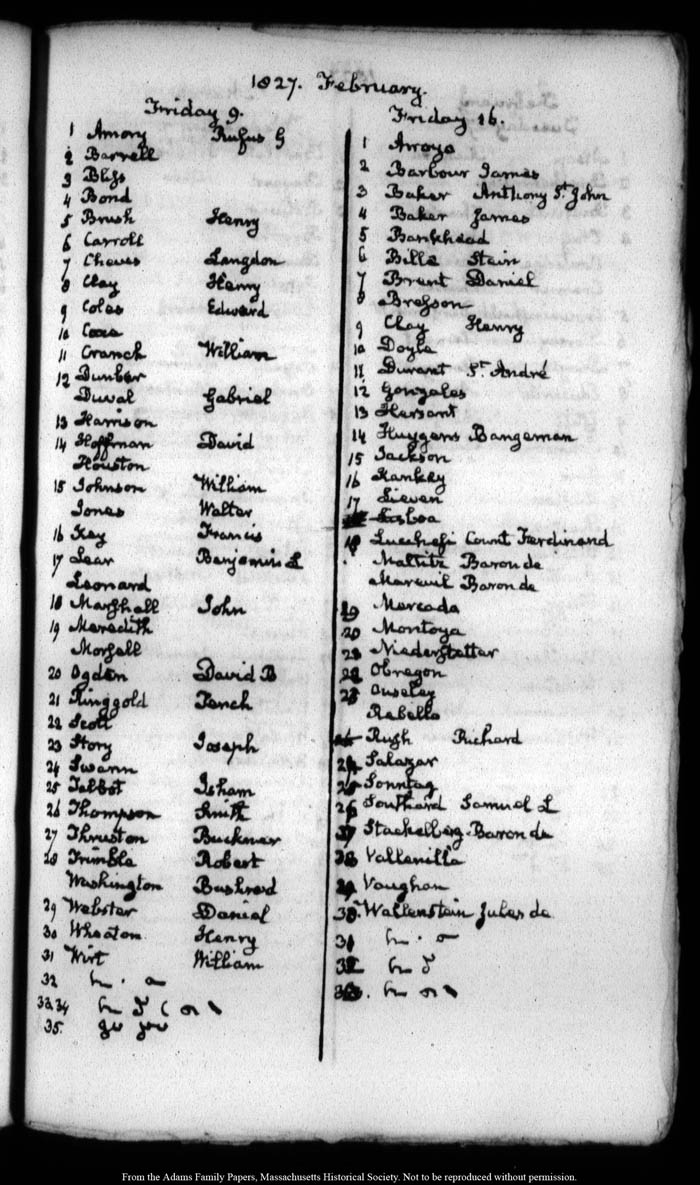 1827. February.
Friday 9.
1 Amory Rufus G
2 Barrell
3 Bliss
4 Bond
5 Brush Henry
6 Carroll
7 Cheves Langdon
8 Clay Henry
9 Coles Edward
10 Coxe
11 Cranch William
12 Dunbar
Duval Gabriel
13 Harrison
14 Hoffman David
Houston
15 Johnson William
Jones Walter
16 Key Francis
17 Lear Benjamin L
Leonard
18 Marshall John
19 Meredith
Morsell
20 Ogden David B
21 Ringgold Tench
22 Scott
23 Story Joseph
24 Swann
25 Talbot Isham
26 Thompson Smith
27 Thruston Buckner
28 Trimble Robert
Washington Bushrod
29 Webster Daniel
30 Wheaton Henry
31 Wirt William
32
33.34
35.
Friday 16.
1 Arroyo
2 Barbour James
3 Baker Anthony St. John
4 Baker James
5 Bankhead
6 Bille Stein
7 Brent Daniel
8 Bresson
9 Clay Henry
10 Doyle
11 Durant St. André
12 Gonzales
13 Hersant
14 Huygens Bangeman
15 Jackson
16 Kankey
17 Lieven
Lisboa
18 Lucchesi Count Ferdinand
Maltitz Baron de
Mareuil Baron de
19 Mercado
20 Montoya
Niederstetter
Obregon
Ouseley
Rebello
Rush Richard
Salazar
Sonntag
26 Southard Samuel L
27 Stackelberg Baron de
28 Vallenilla
29 Vaughan
30 Wallenstein Jules de
31
32
33.
From the Adams Family Papers, Massachusetts Historical Society. Not to be reproduced without permission.